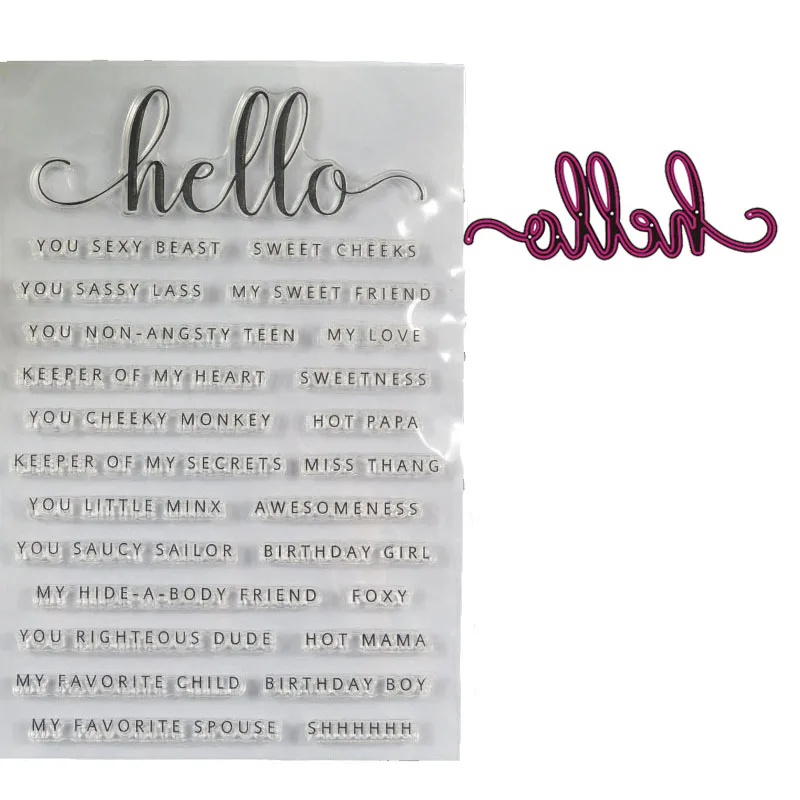 hello
hello
YOU SEXY BEAST SWEET CHEEKS
YOU SASSY LASS MY SWEET FRIEND
YOU NON-ANGSTY TEEN MY LOVE
KEEPER OF MY HEART SWEETNESS
YOU CHEEKY MONKEY HOT PAPA
KEEPER OF MY SECRETS MISS THANG
YOU LITTLE MINX AWESOMENESS
YOU SAUCY SAILOR BIRTHDAY GIRL
MY HIDE-A-BODY FRIEND FOXY
YOU RIGHTEOUS DUDE HOT MAMA
MY FAVORITE CHILD BIRTHDAY BOY
MY FAVORITE SPOUSE SHHHHHH